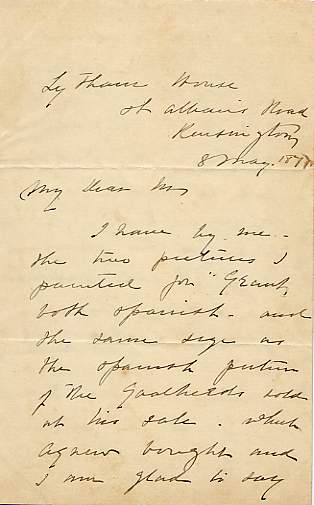 Lytham House
St Albans Road
Kensington
8 May. 187
My Dear
I have by me -
the two pictures I
painted for "Grant,
both Spanish - and
the same size as
the Spanish picture
of The Goatherds sold
at his sale - which
Agnew bought and
I am glad to say